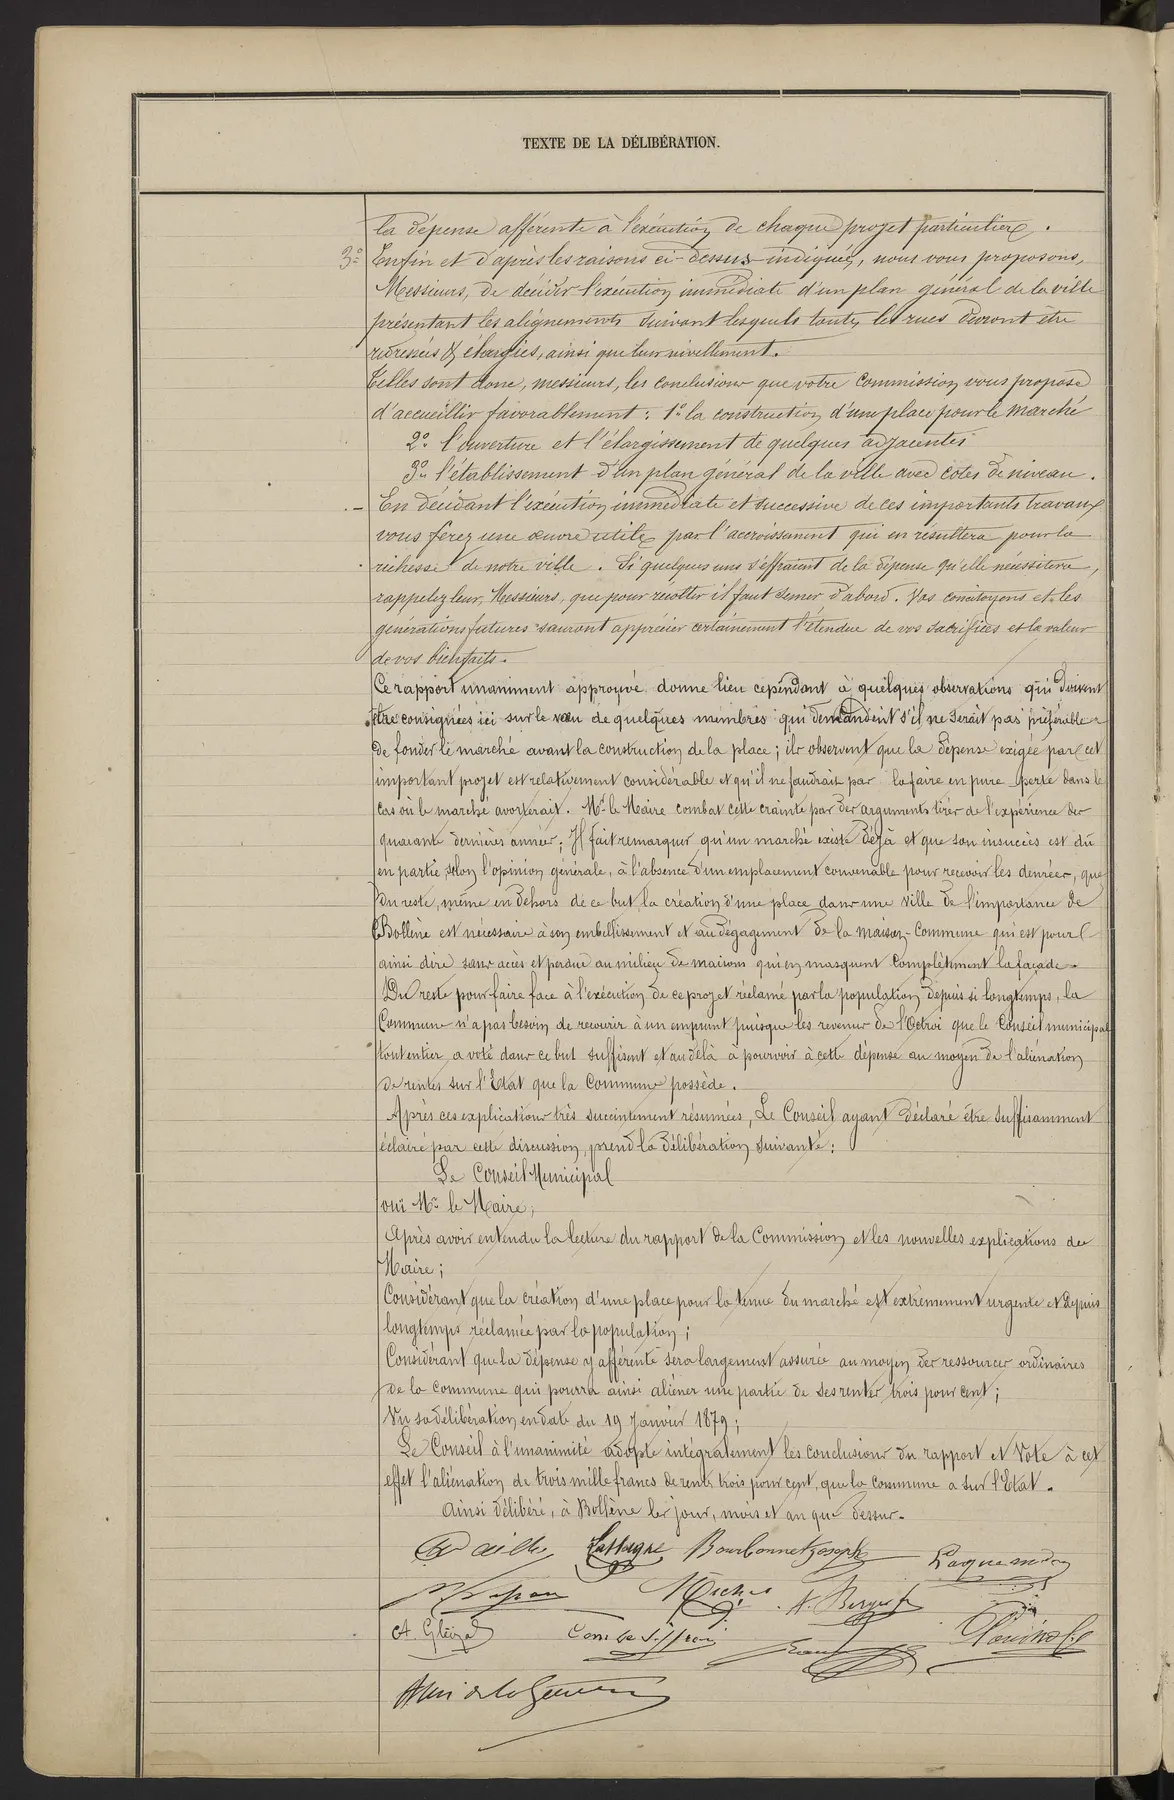 TEXTE DE LA DÉLIBÉRATION.
la dépense afférente à l'exécution de chaque projet particulier.
3º Enfin et d'après les raisons ci-dessus indiqués, nous vous proposons,
Messieurs, de décider l'exécution immédiate d'un plan général de la ville
présentant les alignements suivant lesquels toutes les rues devront être
redressées & élargies, ainsi que leur nivellement.
Telles sont donc, messieurs, les conclusions que votre commission vous propose
d'accueillir favorablement : 1º la construction d'une place pour le marché
2º l'ouverture et l'élargissement de quelques adjacentes
3º l'établissement d'un plan général de la ville avec cotes de niveau.
En décidant l'exécution immédiate et successive de ces importants travaux
vous ferez une œuvre utile par l'accroissement qui en résultera pour la
richesse de notre ville. Si quelques uns s'effraient de la dépense qu'elle nécessitera,
rappelez leur, Messieurs, que pour récolter il faut semer d'abord. Vos concitoyens et les
générations futures sauront apprécier certainement l'étendue de vos sacrifices et la valeur
de vos bienfaits.
Ce rapport unaniment approuvé donne lieu cependant à quelques observations qui doivent
être consignées ici sur le vœu de quelques membres qui demandent s'il ne serait pas préférable
de fonder le marché avant la construction de la place ; ils observent que la dépense exigée par cet
important projet est relativement considérable et qu'il ne faudrait pas la faire en pure perte dans le
cas où le marché avorterait. Mr le Maire combat cette crainte par des arguments tirés de l'expérience des
quarante dernières années ; Il fait remarquer qu'un marché existe déjà et que son insuccès est dû
en partie, selon l'opinion générale, à l'absence d'un emplacement convenable pour recevoir les denrées, que
du reste, même en dehors de ce but, la création d'une place dans une ville de l'importance de
Bollène est nécessaire à son embellissement et au dégagement de la maison-Commune qui est pour
ainsi dire sans accès et perdue au milieu de maisons qui en masquent complètement la façade.
Du reste pour faire face à l'exécution de ce projet réclamé par la population depuis si longtemps, la
Commune n'a pas besoin de recourir à un emprunt puisque les revenus de l'Octroi que le Conseil municipal
tout entier a voté dans ce but suffisent et au delà à pourvoir à cette dépense au moyen de l'aliénation
de rentes sur l'Etat que la Commune possède.
Après ces explications très succintement résumées, Le Conseil ayant déclaré être suffisamment
éclairé par cette discussion, prend la délibération suivante :
Le Conseil Municipal
oui Mr le Maire ;
Après avoir entendu la lecture du rapport de la Commission et les nouvelles explications du
Maire ;
Considérant que la création d'une place pour la tenue du marché est extrèmement urgente et depuis
longtemps réclamée par la population ;
Considérant que la dépense y afférente sera largement assurée au moyen des ressources ordinaires
de la commune qui pourra ainsi aliéner une partie de ses rentes trois pour cent ;
Vu sa délibération en date du 19 Janvier 1879 ;
Le Conseil à l'unanimité adopte intégralement les conclusions du rapport et Vote à cet
effet l'aliénation de trois mille francs de rente trois pour cent, que la commune a sur l'Etat.
Ainsi délibéré, à Bollène les jour, mois et an que dessus.
Bourbonnet Joseph